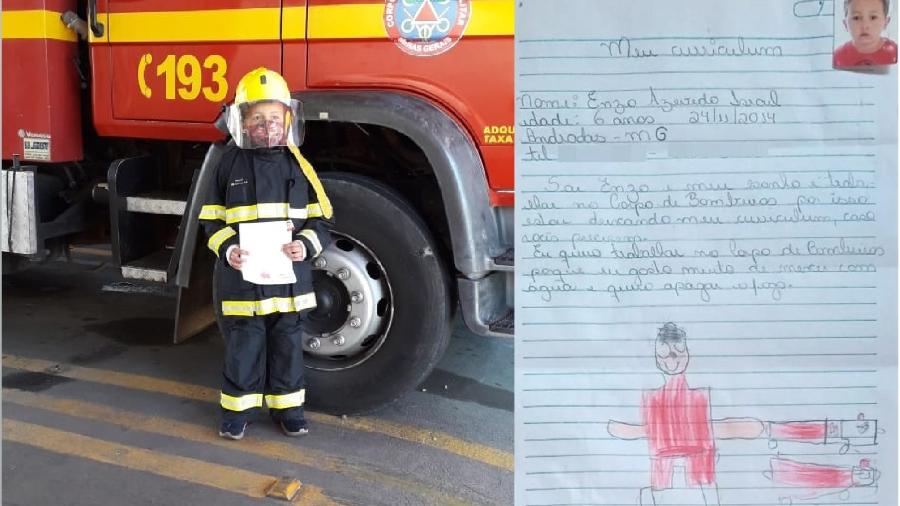 193
CORPO
MILITAR
MINAS GERAIS
ADQU
TAXA
Meu curriculum
Nome: Enzo Azevedo
idade: 6 anos 24/11/2014
Andradas - MG
Tel
Sou Enzo e meu sonho é traba-
lhar no Corpo de Bombeiros por isso
estou deixando meu curriculum, caso
vocês precisem.
Eu quero trabalhar no copo de Bombeiros
poque eu gosto muito de mexer com
água e quero apagar o fogo.